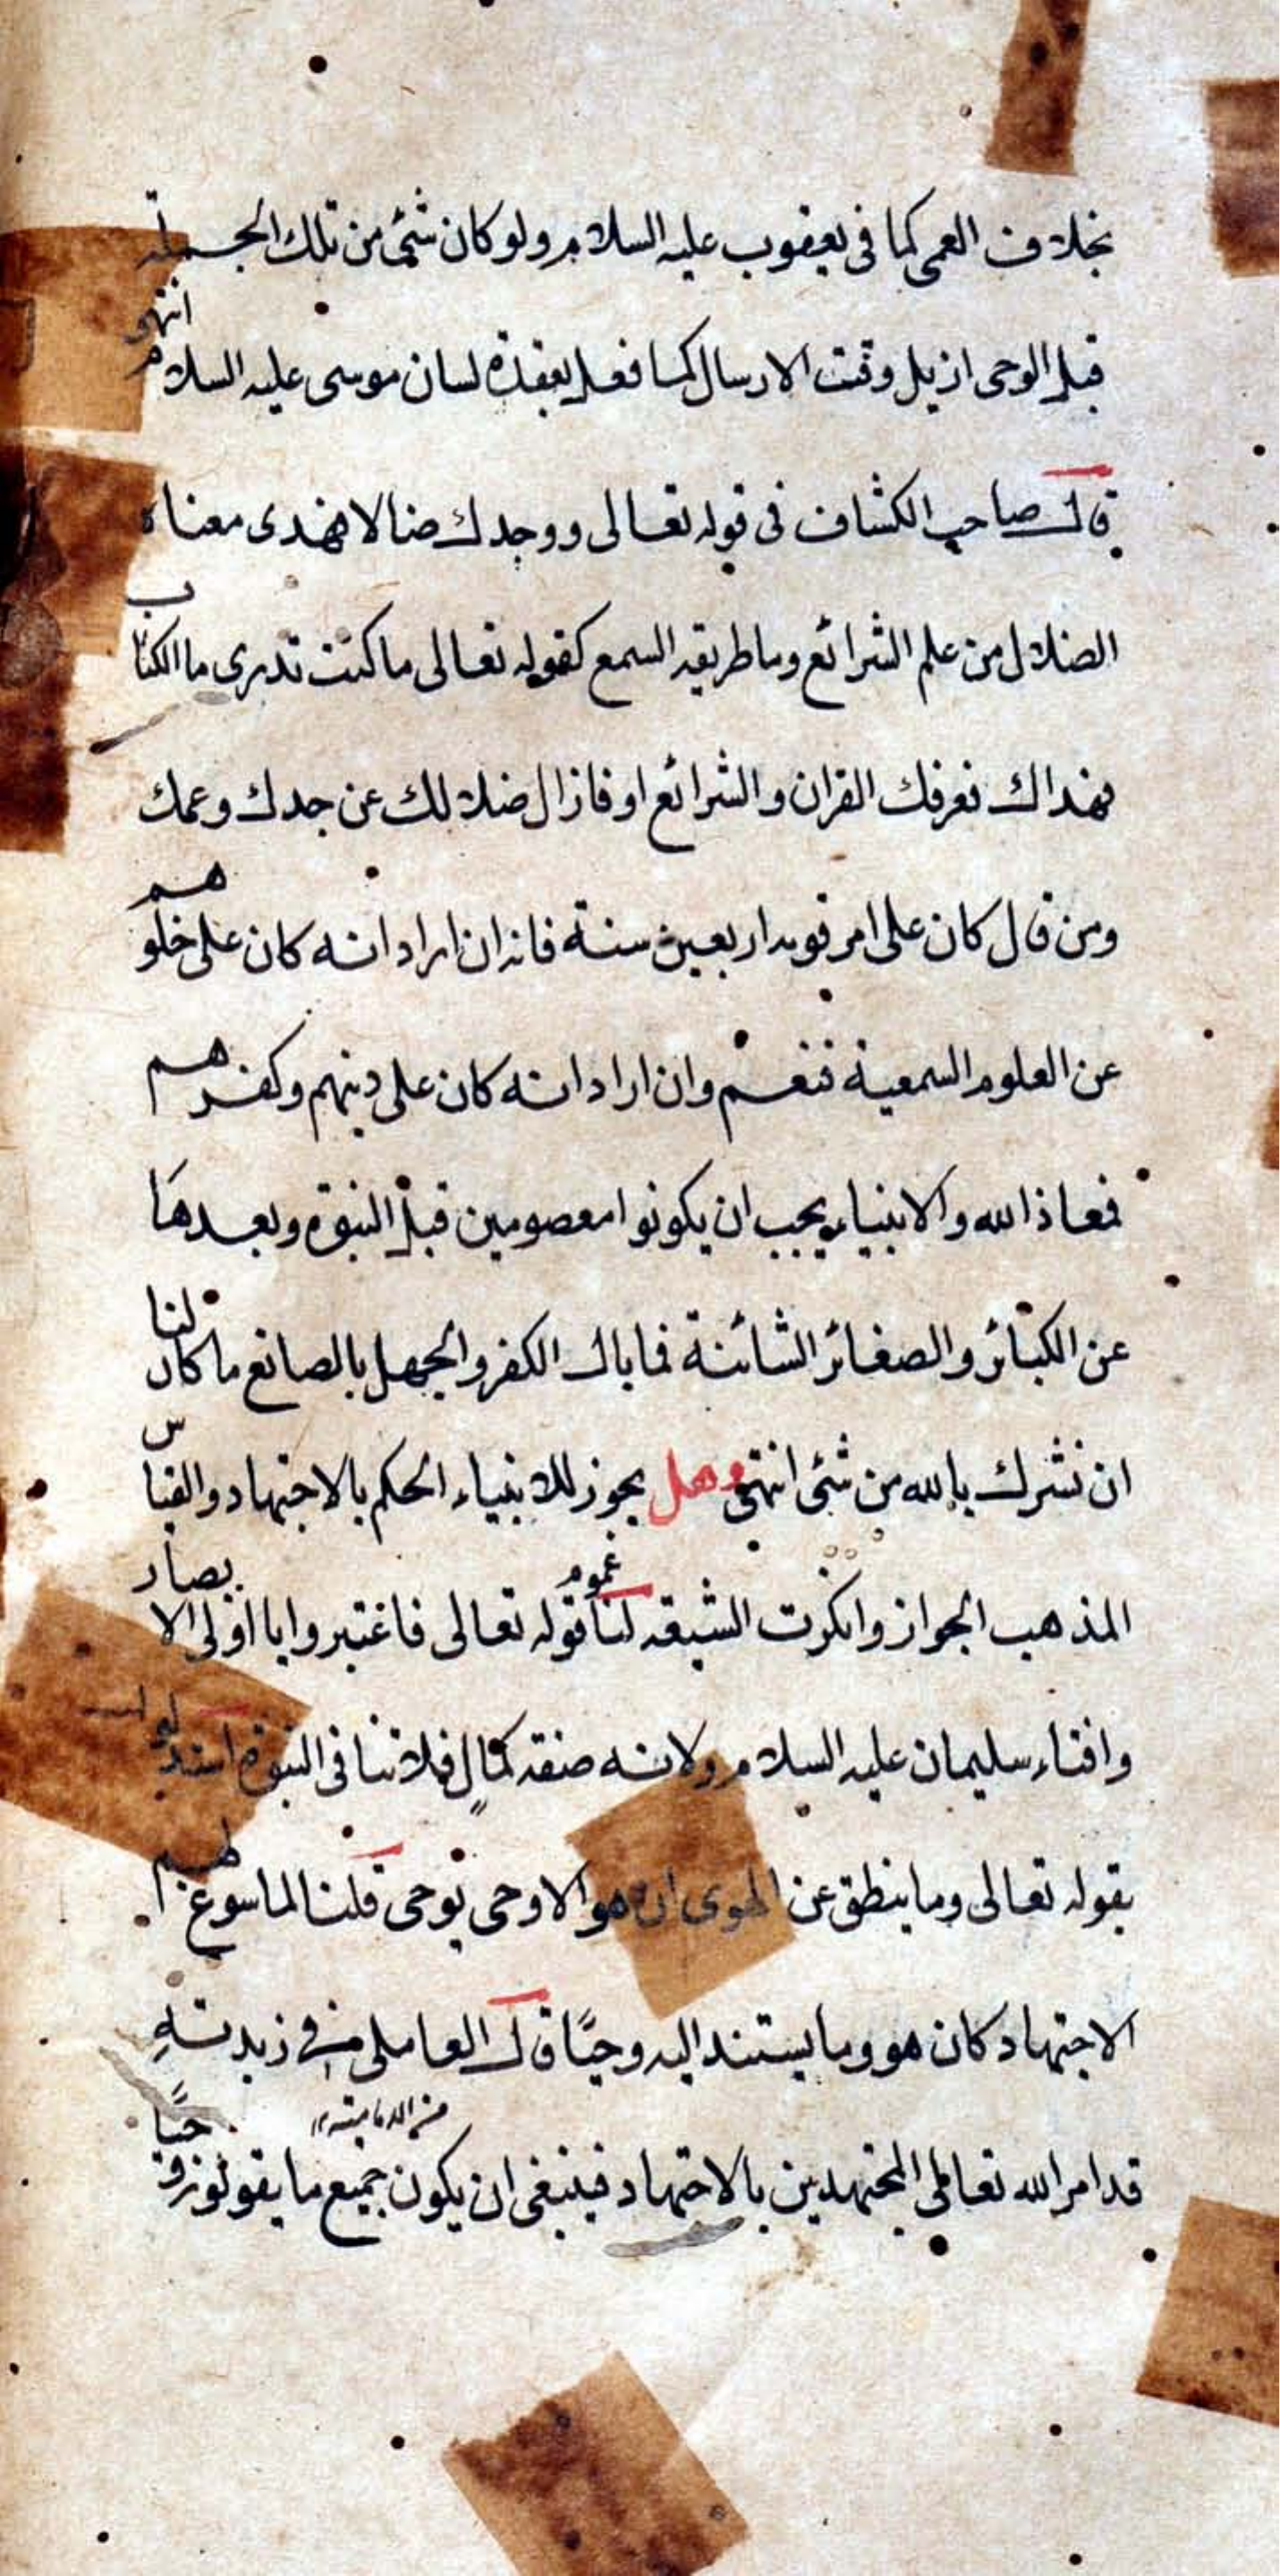 بخلاف العمى كما فى يعقوب عليه السلام ولو كان شئ من تلك الجملة
قبل الوحى ازيل وقت الارسال كما فعل بعقدة لسان موسى عليه السلام انتهى
قال صاحب الكشاف فى قوله تعالى ووجدك ضالا فهدى معناه
الضلال من علم الشرائع وما طريقه السمع كقوله تعالى ما كنت تدرى ما الكتاب
فهداك فعرفك القران والشرائع او فازال ضلالك عن جدك وعمك
ومن قال كان على امر قومه اربعين سنة فانه ان اراد انه كان على خلوهم
عن العلوم السمعية فنعم وان اراد انه كان على دينهم وكفرهم
فمعاذ الله والانبياء يجب ان يكونوا معصومين قبل النبوة وبعدها
عن الكبائر والصغائر الشائنة فما بال الكفر والجهل بالصانع ما كان لنا
ان نشرك بالله من شئ انتهى وهل يجوز للانبياء الحكم بالاجتهاد والقياس
المذهب الجواز وانكرت الشيعة لنا عموم قوله تعالى فاعتبروا يا اولى الابصار
وافتاء سليمان عليه السلام ولانه صفة كمال فلا تنافى النبوة استدلوا
بقوله تعالى وما ينطق عن الهوى ان هو الا وحى يوحى قلنا لما سوغ لهم
الاجتهاد كان هو وما يستند اليه وحيًا قال العاملى فى زبدته
قد امر الله تعالى المجتهدين بالاجتهاد فينبغى ان يكون جميع ما يقولون وحيًا